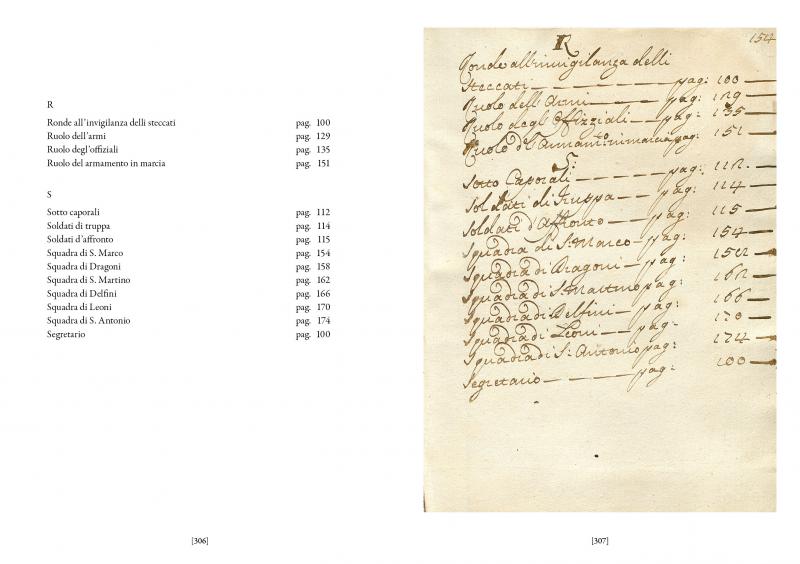 R
Ronde all’invigilanza delli steccati pag. 100
Ruolo dell’armi pag. 129
Ruolo degl’offiziali pag. 135
Ruolo del armamento in marcia pag. 151
S
Sotto caporali pag. 112
Soldati di truppa pag. 114
Soldati d’affronto pag. 115
Squadra di S. Marco pag. 154
Squadra di Dragoni pag. 158
Squadra di S. Martino pag. 162
Squadra di Delfini pag. 166
Squadra di Leoni pag. 170
Squadra di S. Antonio pag. 174
Segretario pag. 100
[306]
154
R
Ronde all'invigilanza delli
steccati pag: 100
Ruolo dell'Armi pag: 129
Ruolo degl'Offizziali pag: 135
Ruolo del Armam.to in marcia pag: 151
S:
Sotto Caporali pag: 112
Soldati di Truppa pag: 114
Soldati d'Affronto pag: 115
Squadra di S: Marco pag: 154
Squadra di Dragoni pag: 158
Squadra di S: Martino pag: 162
Squadra di Delfini pag: 166
Squadra di Leoni pag: 170
Squadra di S: Antonio pag: 174
Segretario pag: 100
[307]